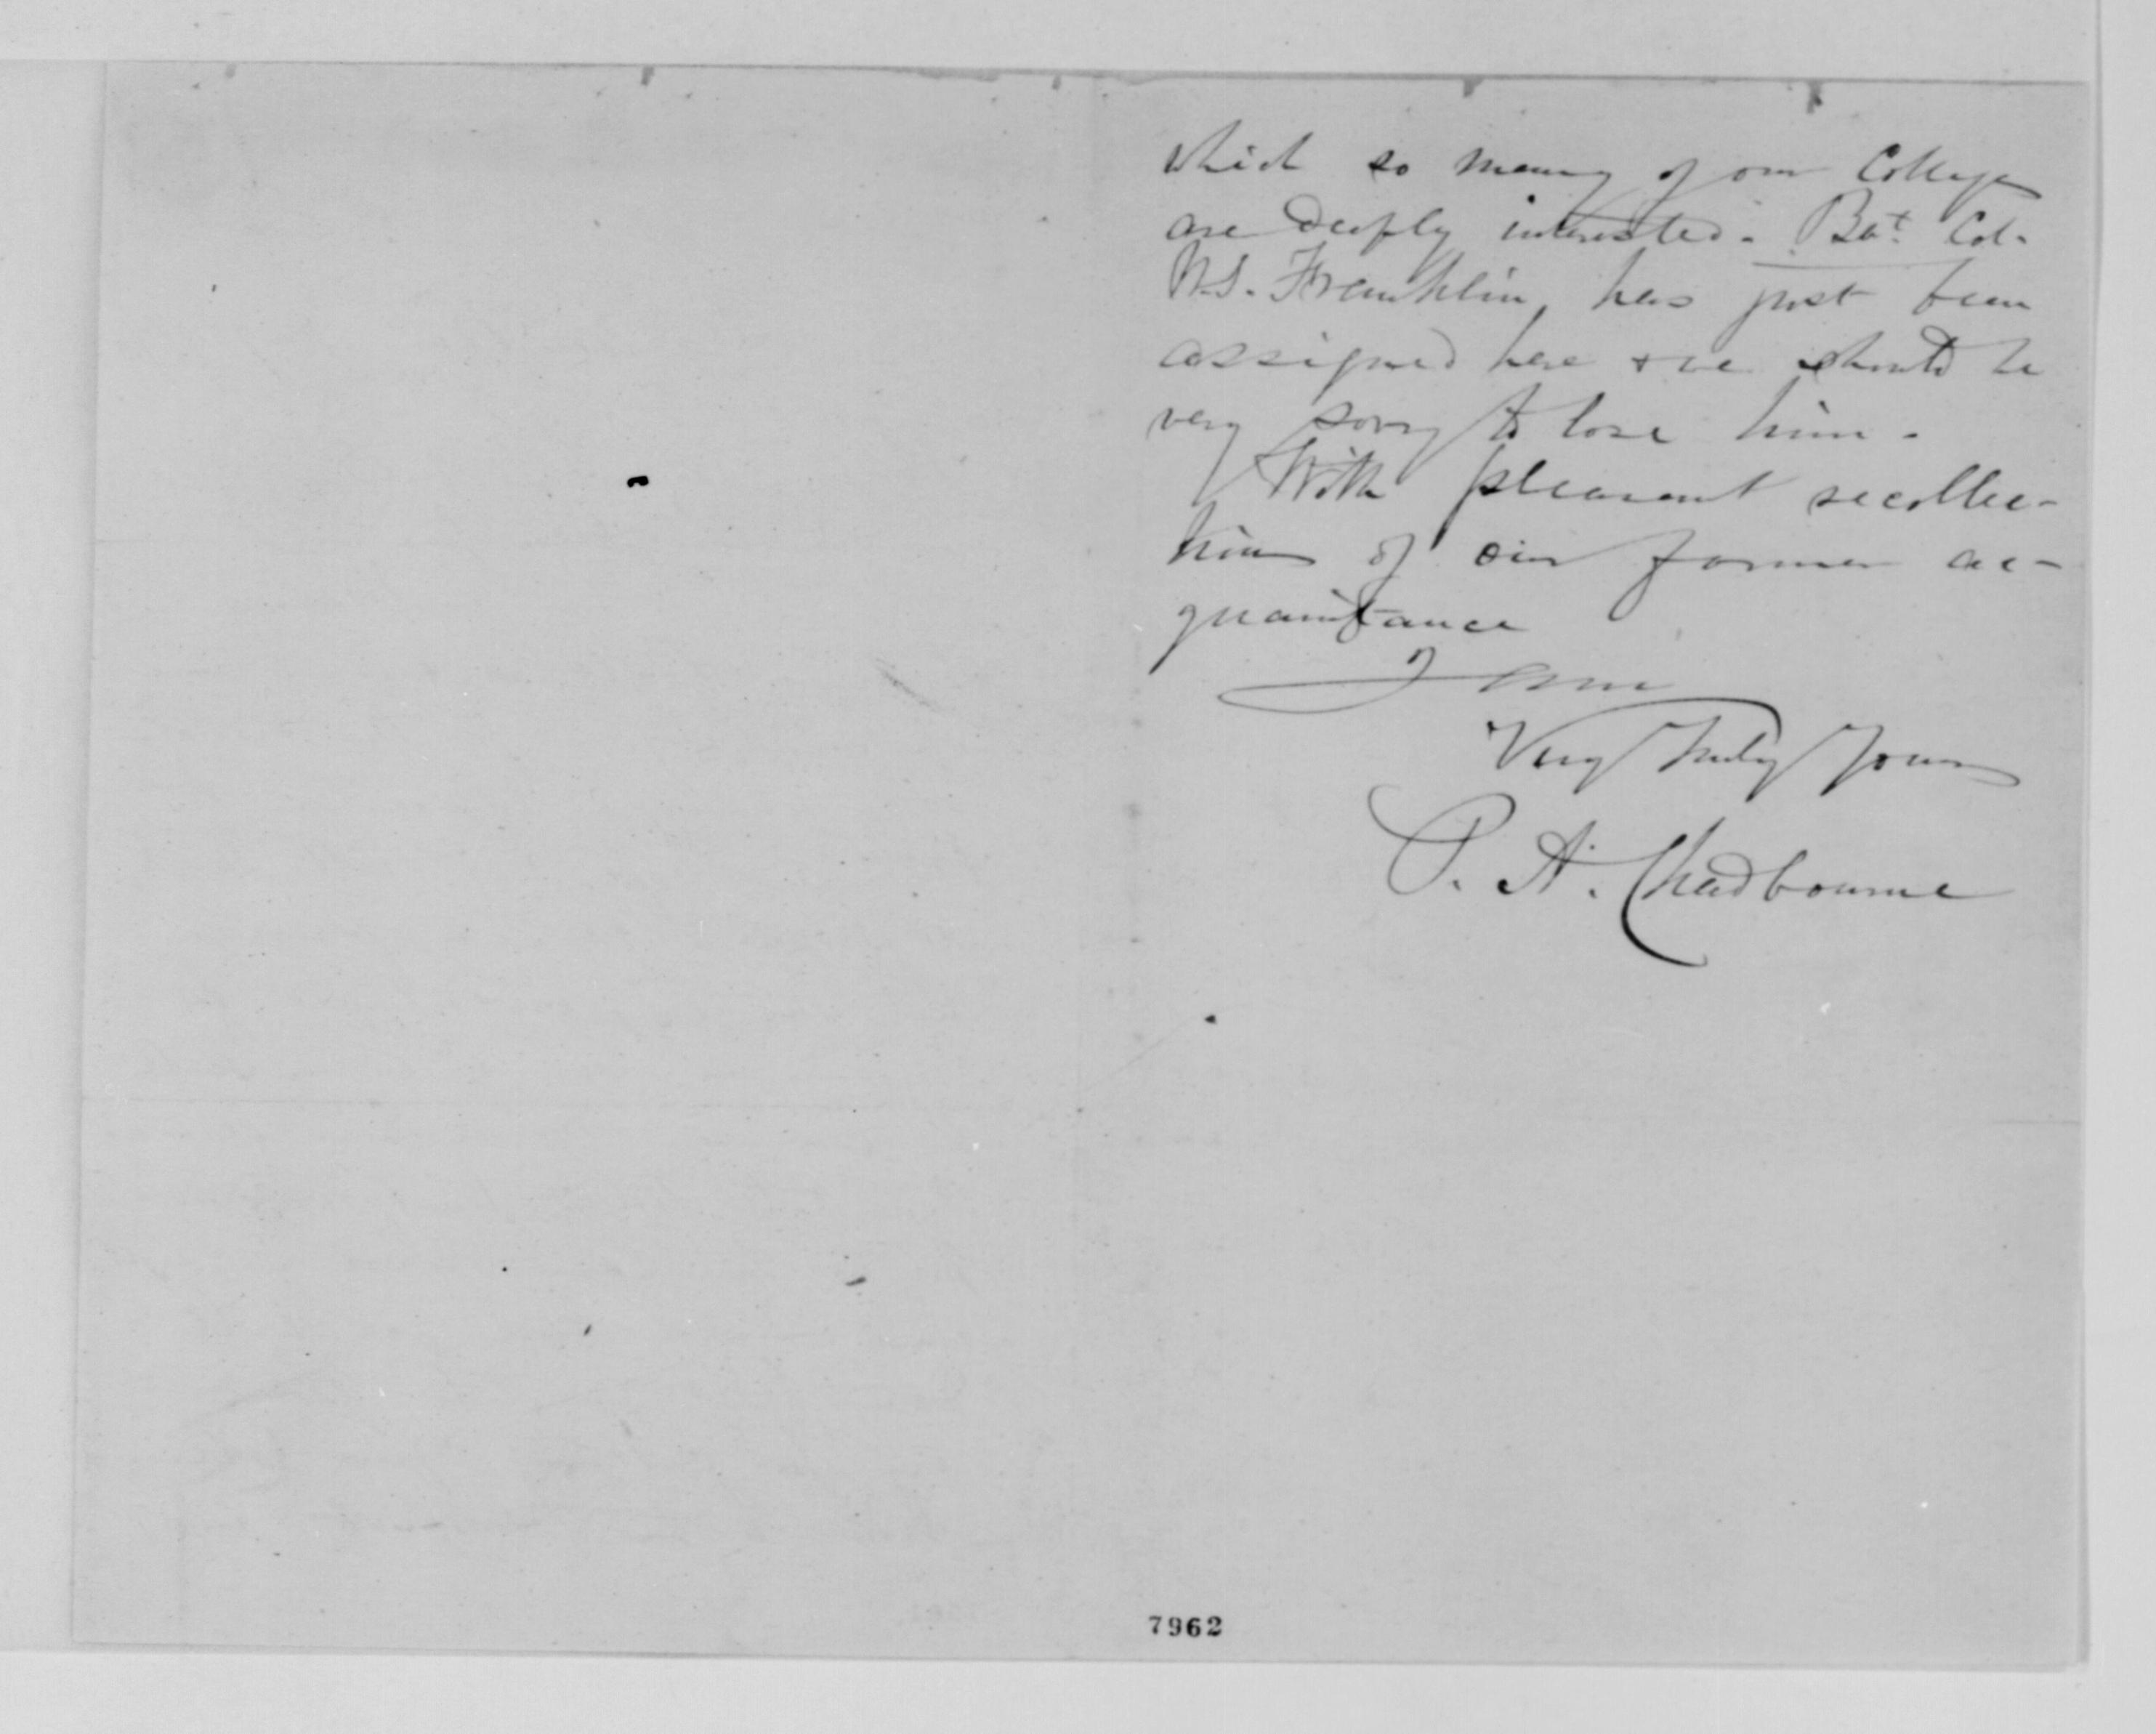 which so many of our Colleges
are deeply interested. Bvt. Col.
W.S. Franklin, has just been
assigned here + we should be
very sorry to lose him.
With pleasant recollec-
tions of our former ac-
quaintance
I am
Very Truly Yours
P. A. Chadbourne
7962